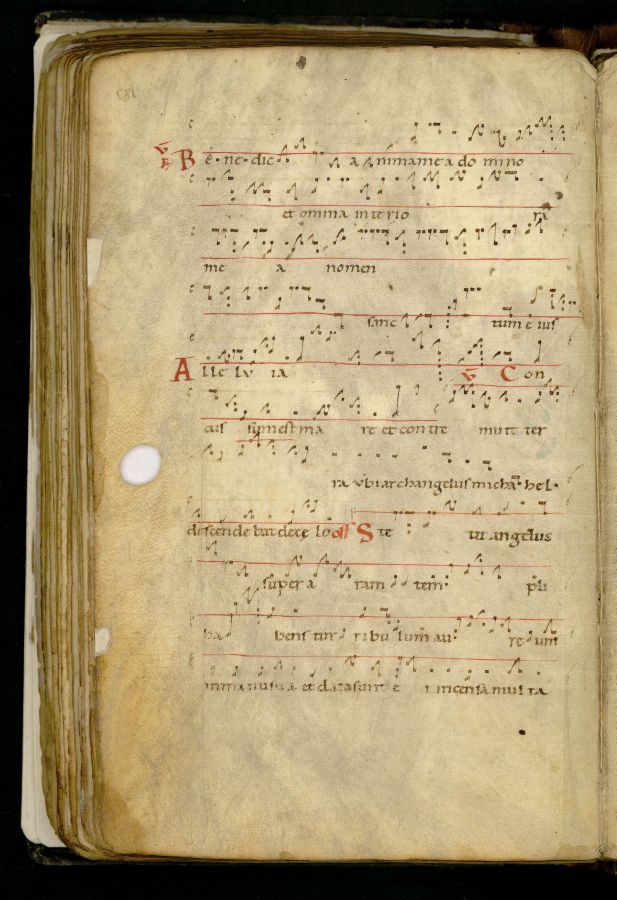 cxl
℣ Be ne dic a nima mea do mino
et omnia interio ra
me a nomen
sanc tum e ius
A lle lu ia ℣ Con
cus sum est ma re et con tre muit ter
ra ubi archangelus micha hel
descendebat de ce lo off Ste tit angelus
super a ram tem pli
ha bens turi ribulum au re um
in manu sua et data sunt e i incensa multa